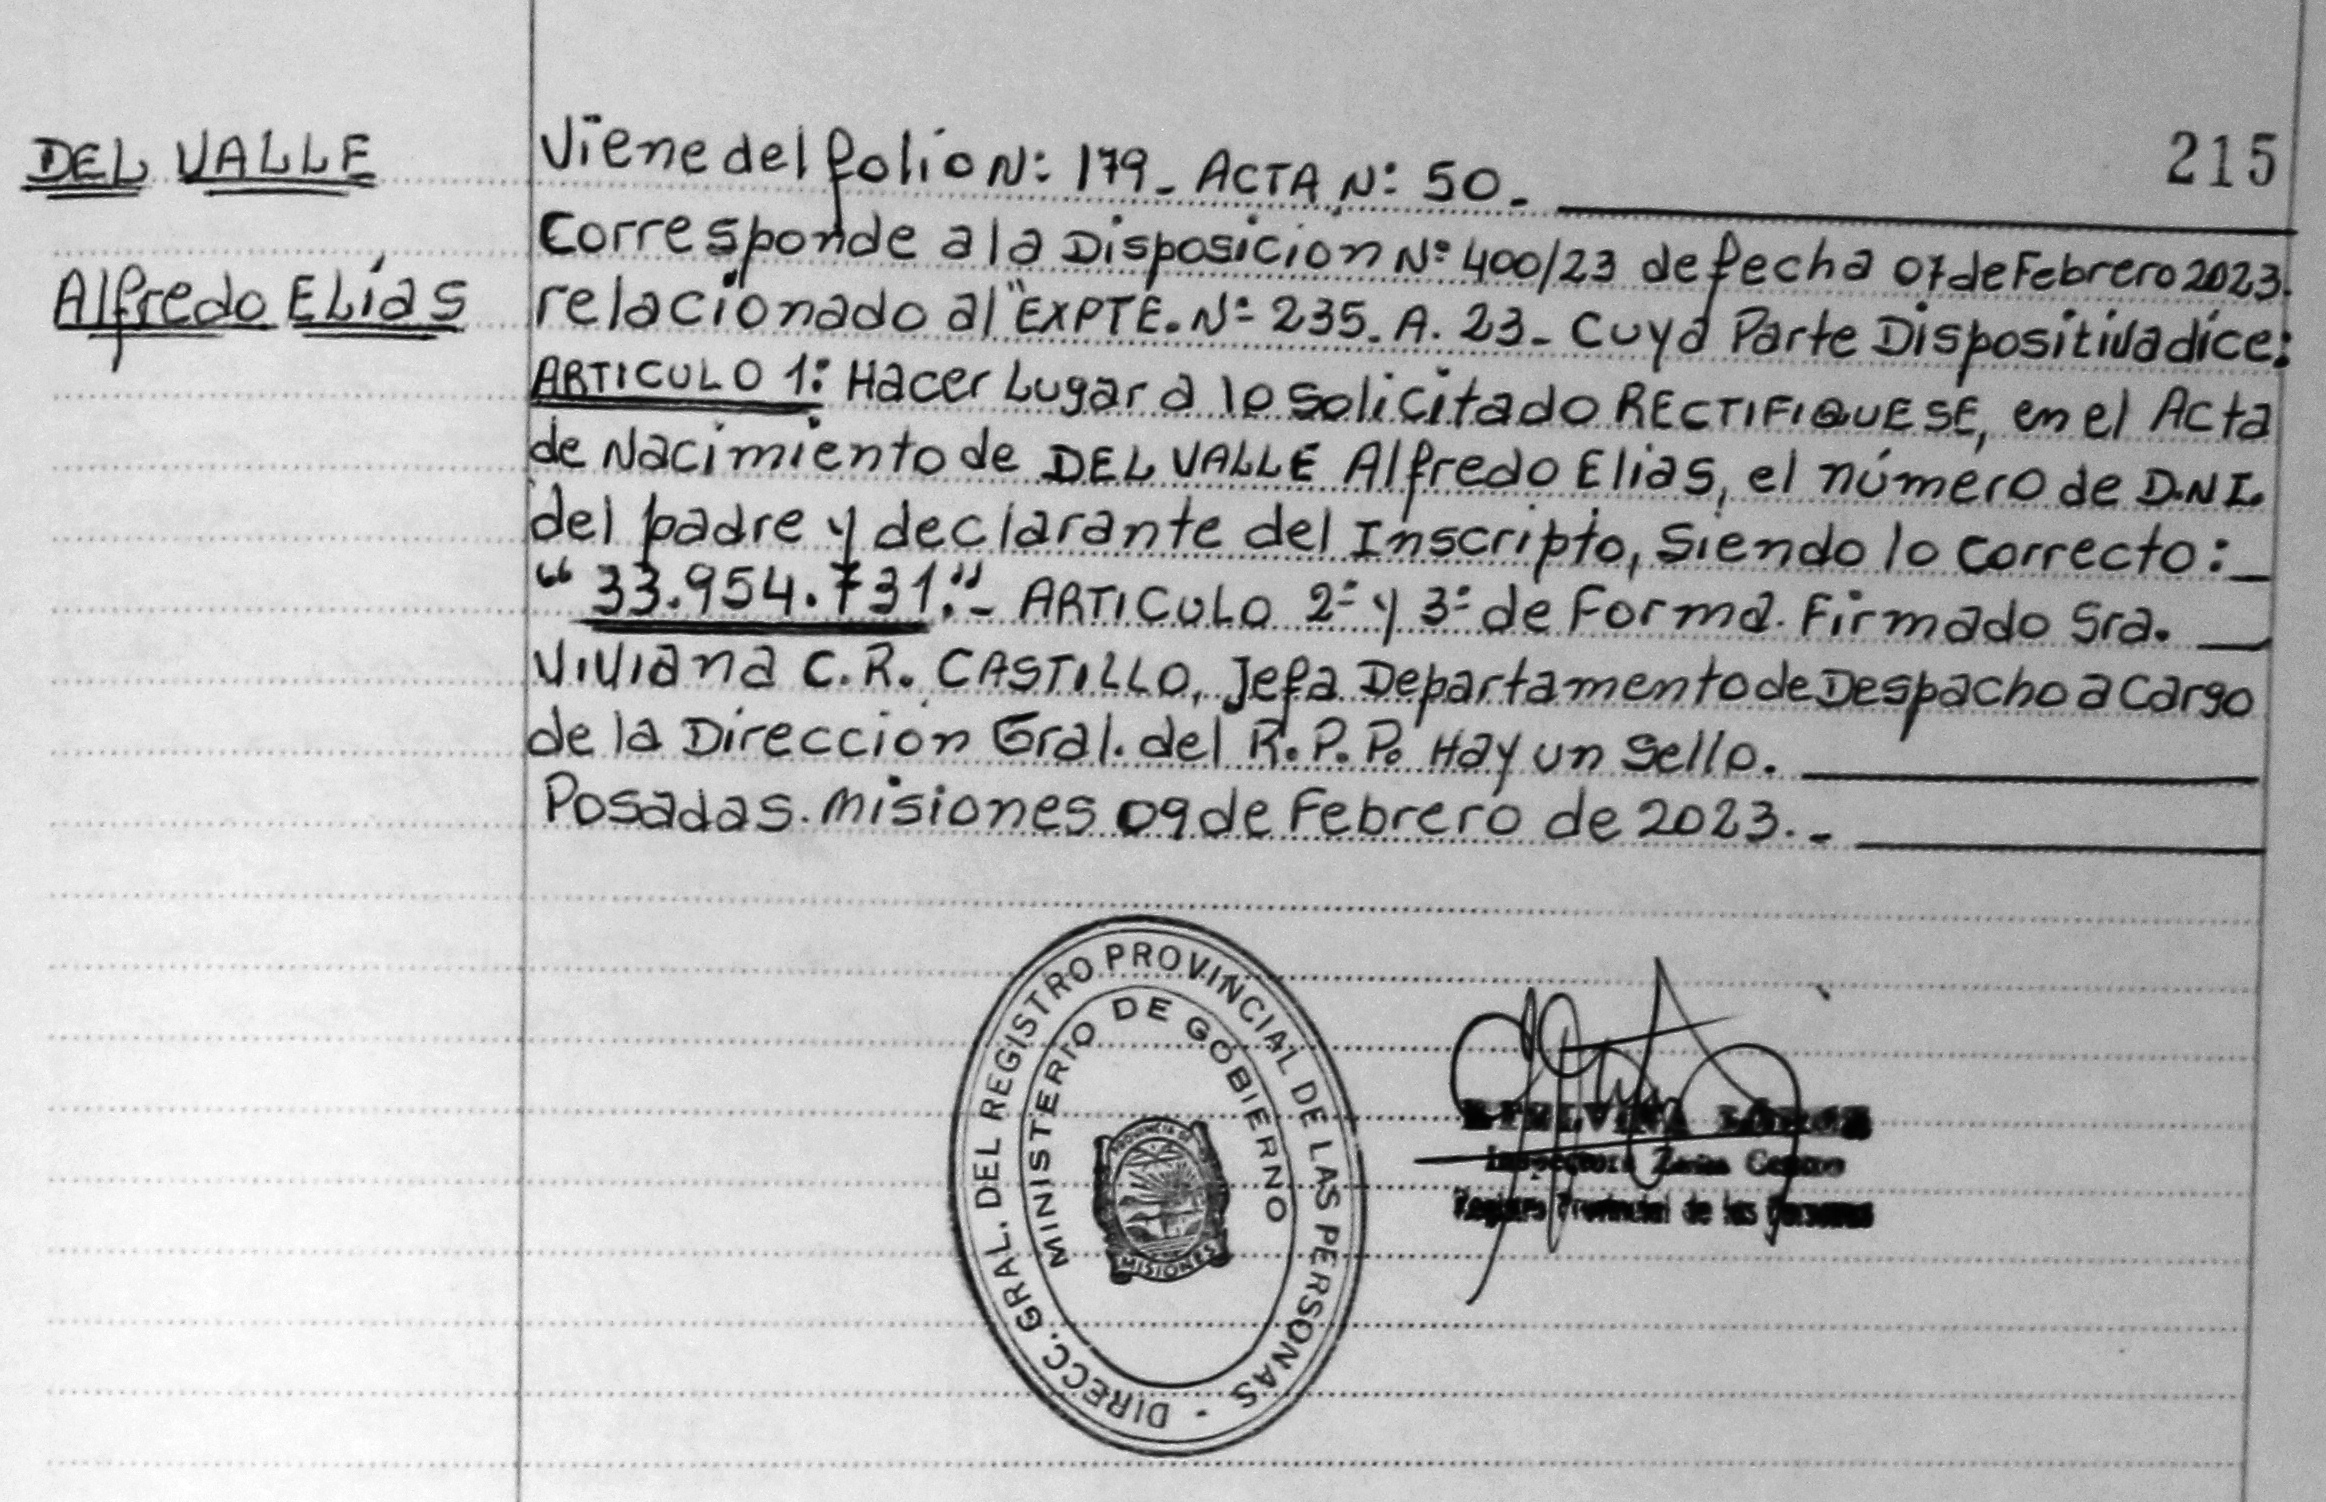 215
DEL VALLE
Alfredo ELías
Viene del folio N: 179_ ACTA N: 50._
Corresponde a la Disposición Nº 400/23 de fecha 07 de Febrero 2023.
relacionado al "EXPTE. Nº 235_ A. 23_ Cuya Parte Dispositiva dice:
ARTICULO 1: Hacer Lugar a lo solicitado RECTIFIQUESE, en el Acta
de Nacimiento de DEL VALLE Alfredo Elias, el número de D.N.I.
del padre y declarante del Inscripto, Siendo lo correcto:_
"33.954.731."_ ARTICULO 2º y 3º de Forma. Firmado Sra.
Viviana C.R. CASTILLO, Jefa Departamento de Despacho a Cargo
de la Dirección Gral. del R.P.P. Hay un Sello.
Posadas. Misiones 09 de Febrero de 2023._
DIRECC. GRAL. DEL REGISTRO PROVINCIAL DE LAS PERSONAS -
MINISTERIO DE GOBIERNO
PROVINCIA DE
MISIONES
Registro Provincial de las Personas